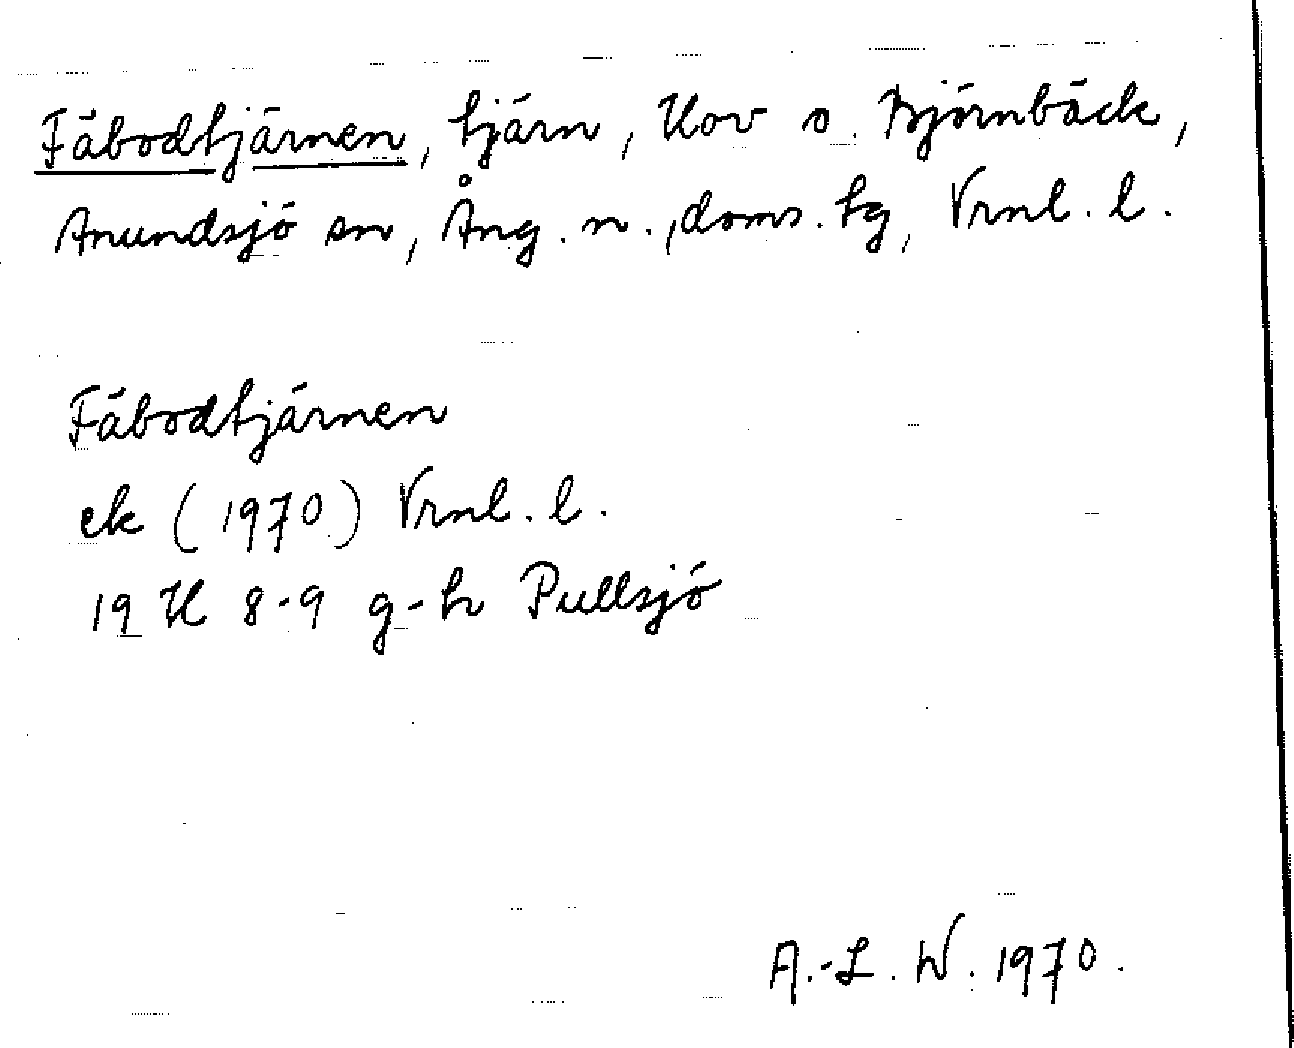 Fäbodtjärnen, tjärn, Hov o. Björnbäck,
Anundsjö sn, Ång. n., doms. tg, Vrnl. l.
Fäbodtjärnen
ek (1970) Vrnl. l.
19 H 8-9 g-h Pullsjö
A.-L. W. 1970.